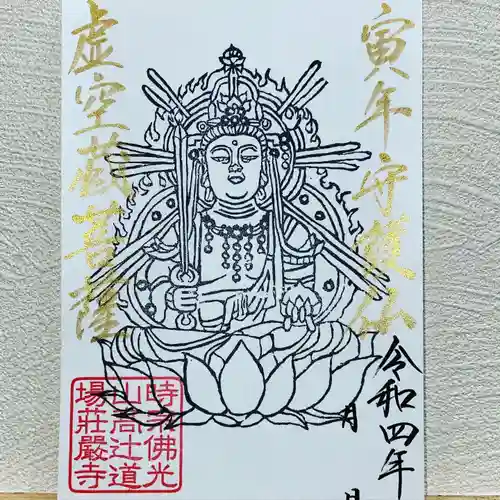 寅年守護仏
令和四年
月
日
虚空蔵菩薩
時宗佛光
山高辻道
場莊嚴寺